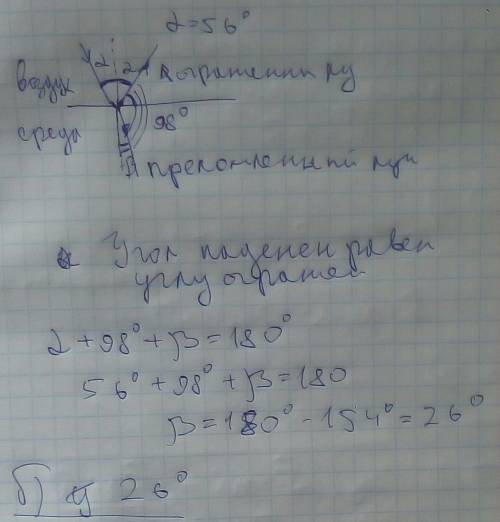 α=56°
α α отраженный лу
воздух
среда
98°
β преломленный луч
Угол паденен равен
углу отражен
α+98°+β=180°
56°+98°+β=180
β=180°-154°=26°
б) 26°